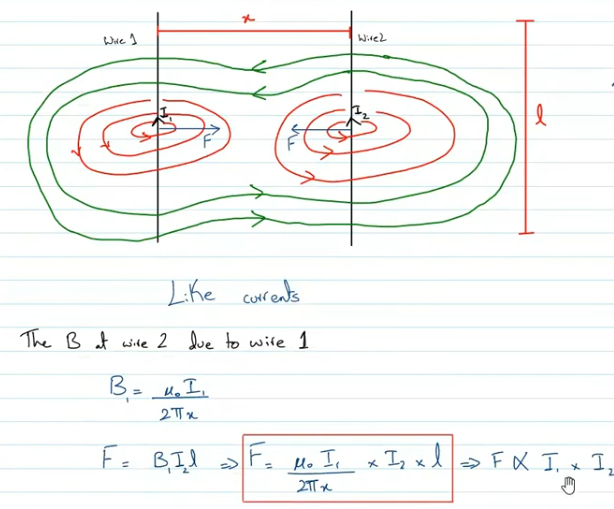 x
Wire 1
Wire2
I₁
I₂
F
F
l
Like currents
The B at wire 2 due to wire 1
B₁ = μ₀ I₁ / 2πx
F = B₁I₂l ⇒ F = μ₀ I₁ / 2πx × I₂ × l ⇒ F ∝ I₁ × I₂